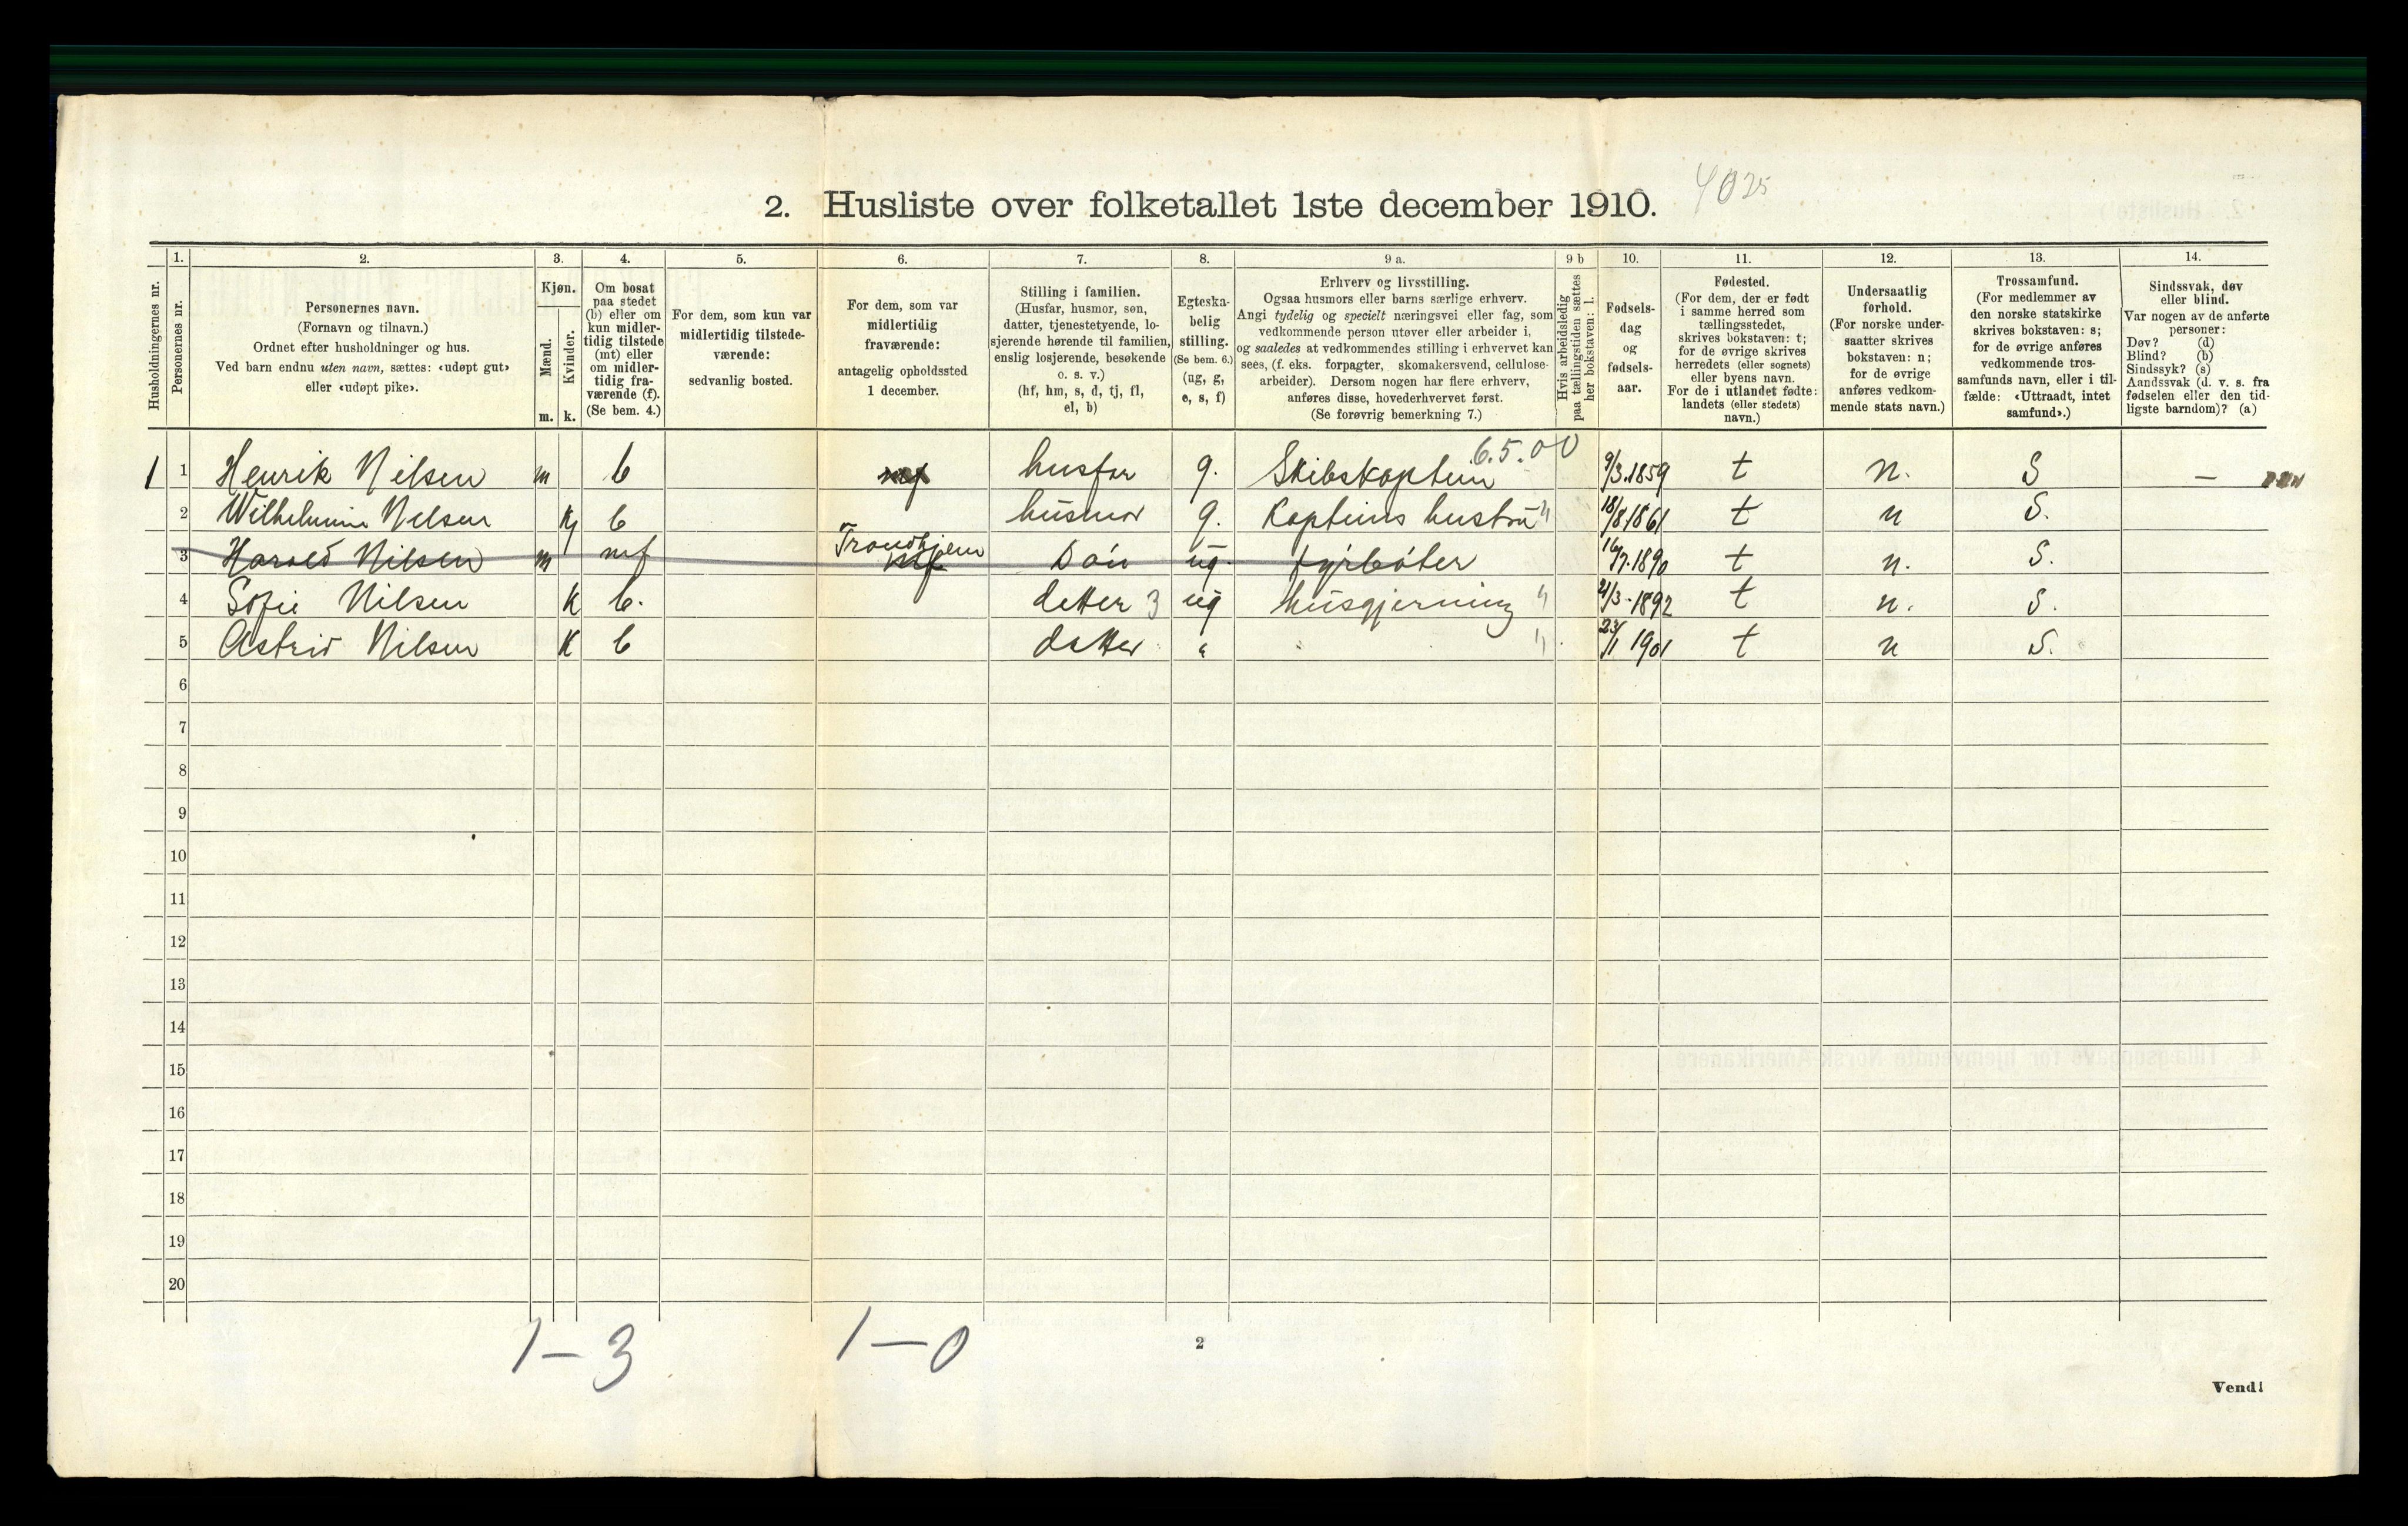 4025
2. Husliste over folketallet 1ste december 1910.
Husholdningernes nr.
1. Personernes nr.
2. Personernes navn. (Fornavn og tilnavn.) Ordnet efter husholdninger og hus. Ved barn endnu uten navn, sættes: «udøpt gut» eller «udøpt pike».
3. Kjøn. Mænd. m. Kvinder. k.
4. Om bosat paa stedet (b) eller om kun midlertidig tilstede (mt) eller om midlertidig fraværende (f). (Se bem. 4.)
5. For dem, som kun var midlertidig tilstedeværende: sedvanlig bosted.
6. For dem, som var midlertidig fraværende: antagelig opholdssted 1 december.
7. Stilling i familien. (Husfar, husmor, søn, datter, tjenestetyende, losjerende hørende til familien, enslig losjerende, besøkende o. s. v.) (hf, hm, s, d, tj, fl, el, b)
8. Egteskabelig stilling. (Se bem. 6.) (ug, g, e, s, f)
9 a. Erhverv og livsstilling. Ogsaa husmors eller barns særlige erhverv. Angi tydelig og specielt næringsvei eller fag, som vedkommende person utøver eller arbeider i, og saaledes at vedkommendes stilling i erhvervet kan sees, (f. eks. forpagter, skomakersvend, cellulosearbeider). Dersom nogen har flere erhverv, anføres disse, hovederhvervet først. (Se forøvrig bemerkning 7.)
9 b Hvis arbeidsledig paa tællingstiden sættes her bokstaven: l.
10. Fødselsdag og fødselsaar.
11. Fødested. (For dem, der er født i samme herred som tællingsstedet, skrives bokstaven: t; for de øvrige skrives herredets (eller sognets) eller byens navn. For de i utlandet fødte: landets (eller stedets) navn.)
12. Undersaatlig forhold. (For norske undersaatter skrives bokstaven: n; for de øvrige anføres vedkommende stats navn.)
13. Trossamfund. (For medlemmer av den norske statskirke skrives bokstaven: s; for de øvrige anføres vedkommende trossamfunds navn, eller i tilfælde: «Uttraadt, intet samfund».)
14. Sindssvak, døv eller blind. Var nogen av de anførte personer: Døv? (d) Blind? (b) Sindssyk? (s) Aandssvak (d. v. s. fra fødselen eller den tidligste barndom)? (a)
6.5.00
1 1 Henrik Nilsen m b husfar g. Skibskaptein 9/3.1859 t n. S –
2 Wilhelmine Nilsen k b husmor g. Kapteins hustru " 18/8 1861 t n S.
3 Harald Nilsen m mf Trondhjem mf Søn ug. fyrbøter 16/7.1890 t n. S.
4 Sofie Nilsen K b. datter 3 ug husgjerning " 21/3-1892 t n. S.
5 Astrid Nilsen K b datter " " 23/1 1901 t n S.
6
7
8
9
10
11
12
13
14
15
16
17
18
19
20
1 – 3 1 – 0
2
Vend!